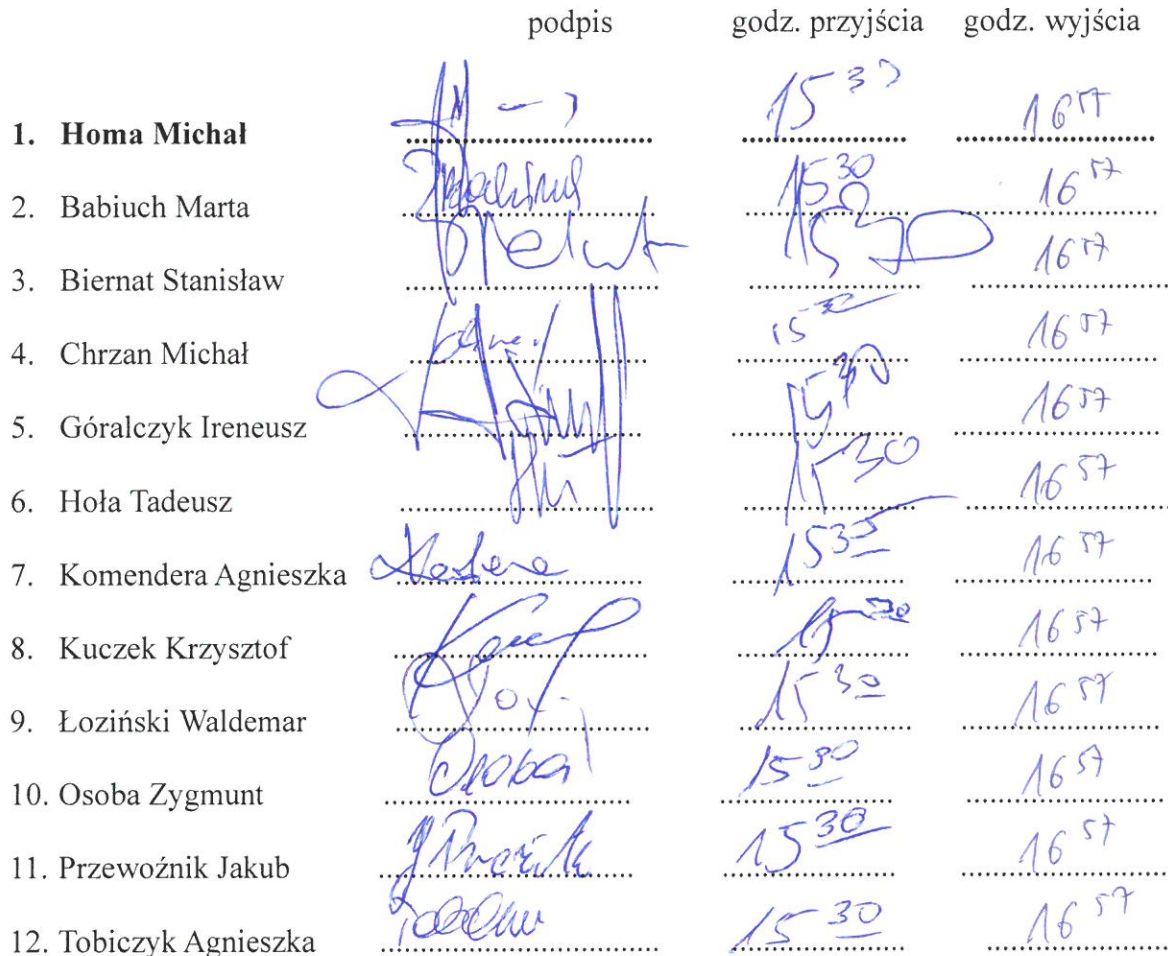 podpis godz. przyjścia godz. wyjścia
1. Homa Michał 16 57
2. Babiuch Marta 15 30 16 57
3. Biernat Stanisław 15 30 16 57
4. Chrzan Michał 16 57
5. Góralczyk Ireneusz 16 57
6. Hoła Tadeusz 15 30 16 57
7. Komendera Agnieszka 15 35 16 57
8. Kuczek Krzysztof 15 30 16 57
9. Łoziński Waldemar 15 30 16 57
10. Osoba Zygmunt Osoba 15 30 16 57
11. Przewoźnik Jakub 15 30 16 57
12. Tobiczyk Agnieszka 15 30 16 57